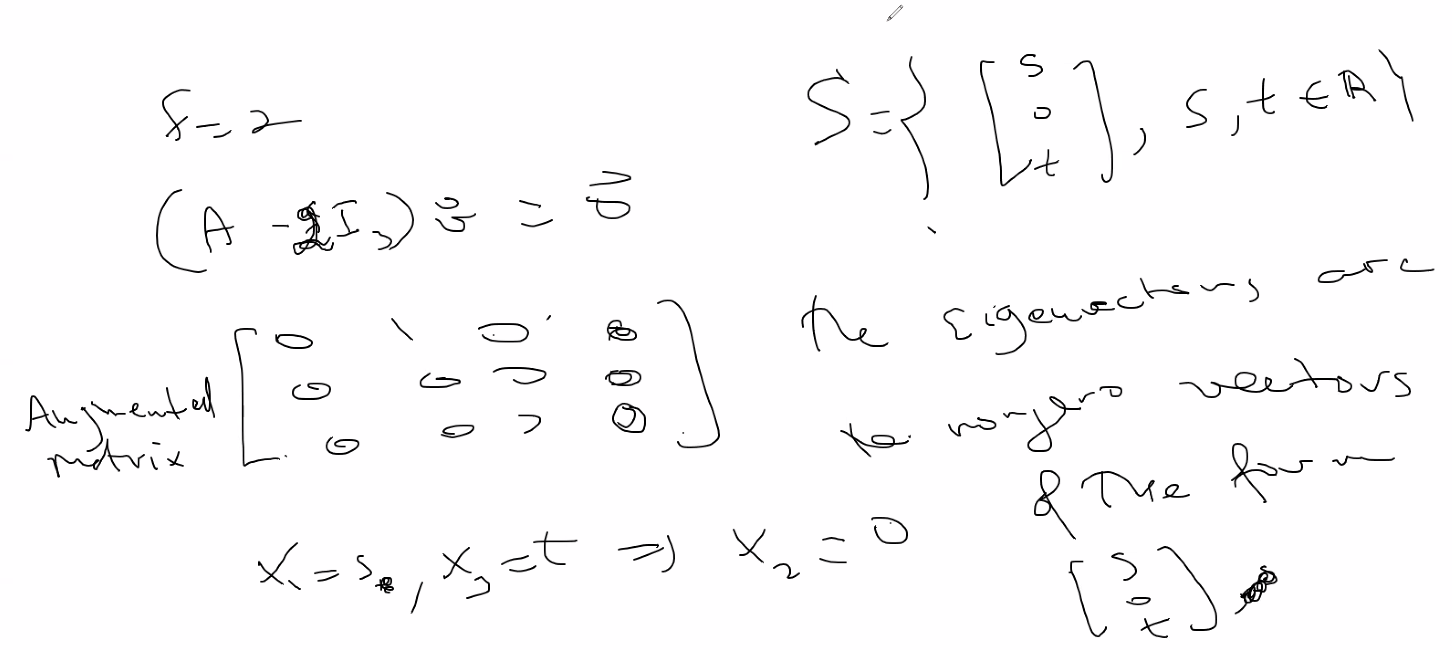 δ = 2
(A - 2I₃) v⃗ = 0⃗
Augmented matrix
[ 0 1 0 0
0 0 0 0
0 0 0 0 ]
x₁ = s, x₃ = t ⇒ x₂ = 0
S = { [ s
0
t ] , s, t ∈ ℝ }
the Eigenvectors are
the nonzero vectors
of The form
[ s
0
t ]